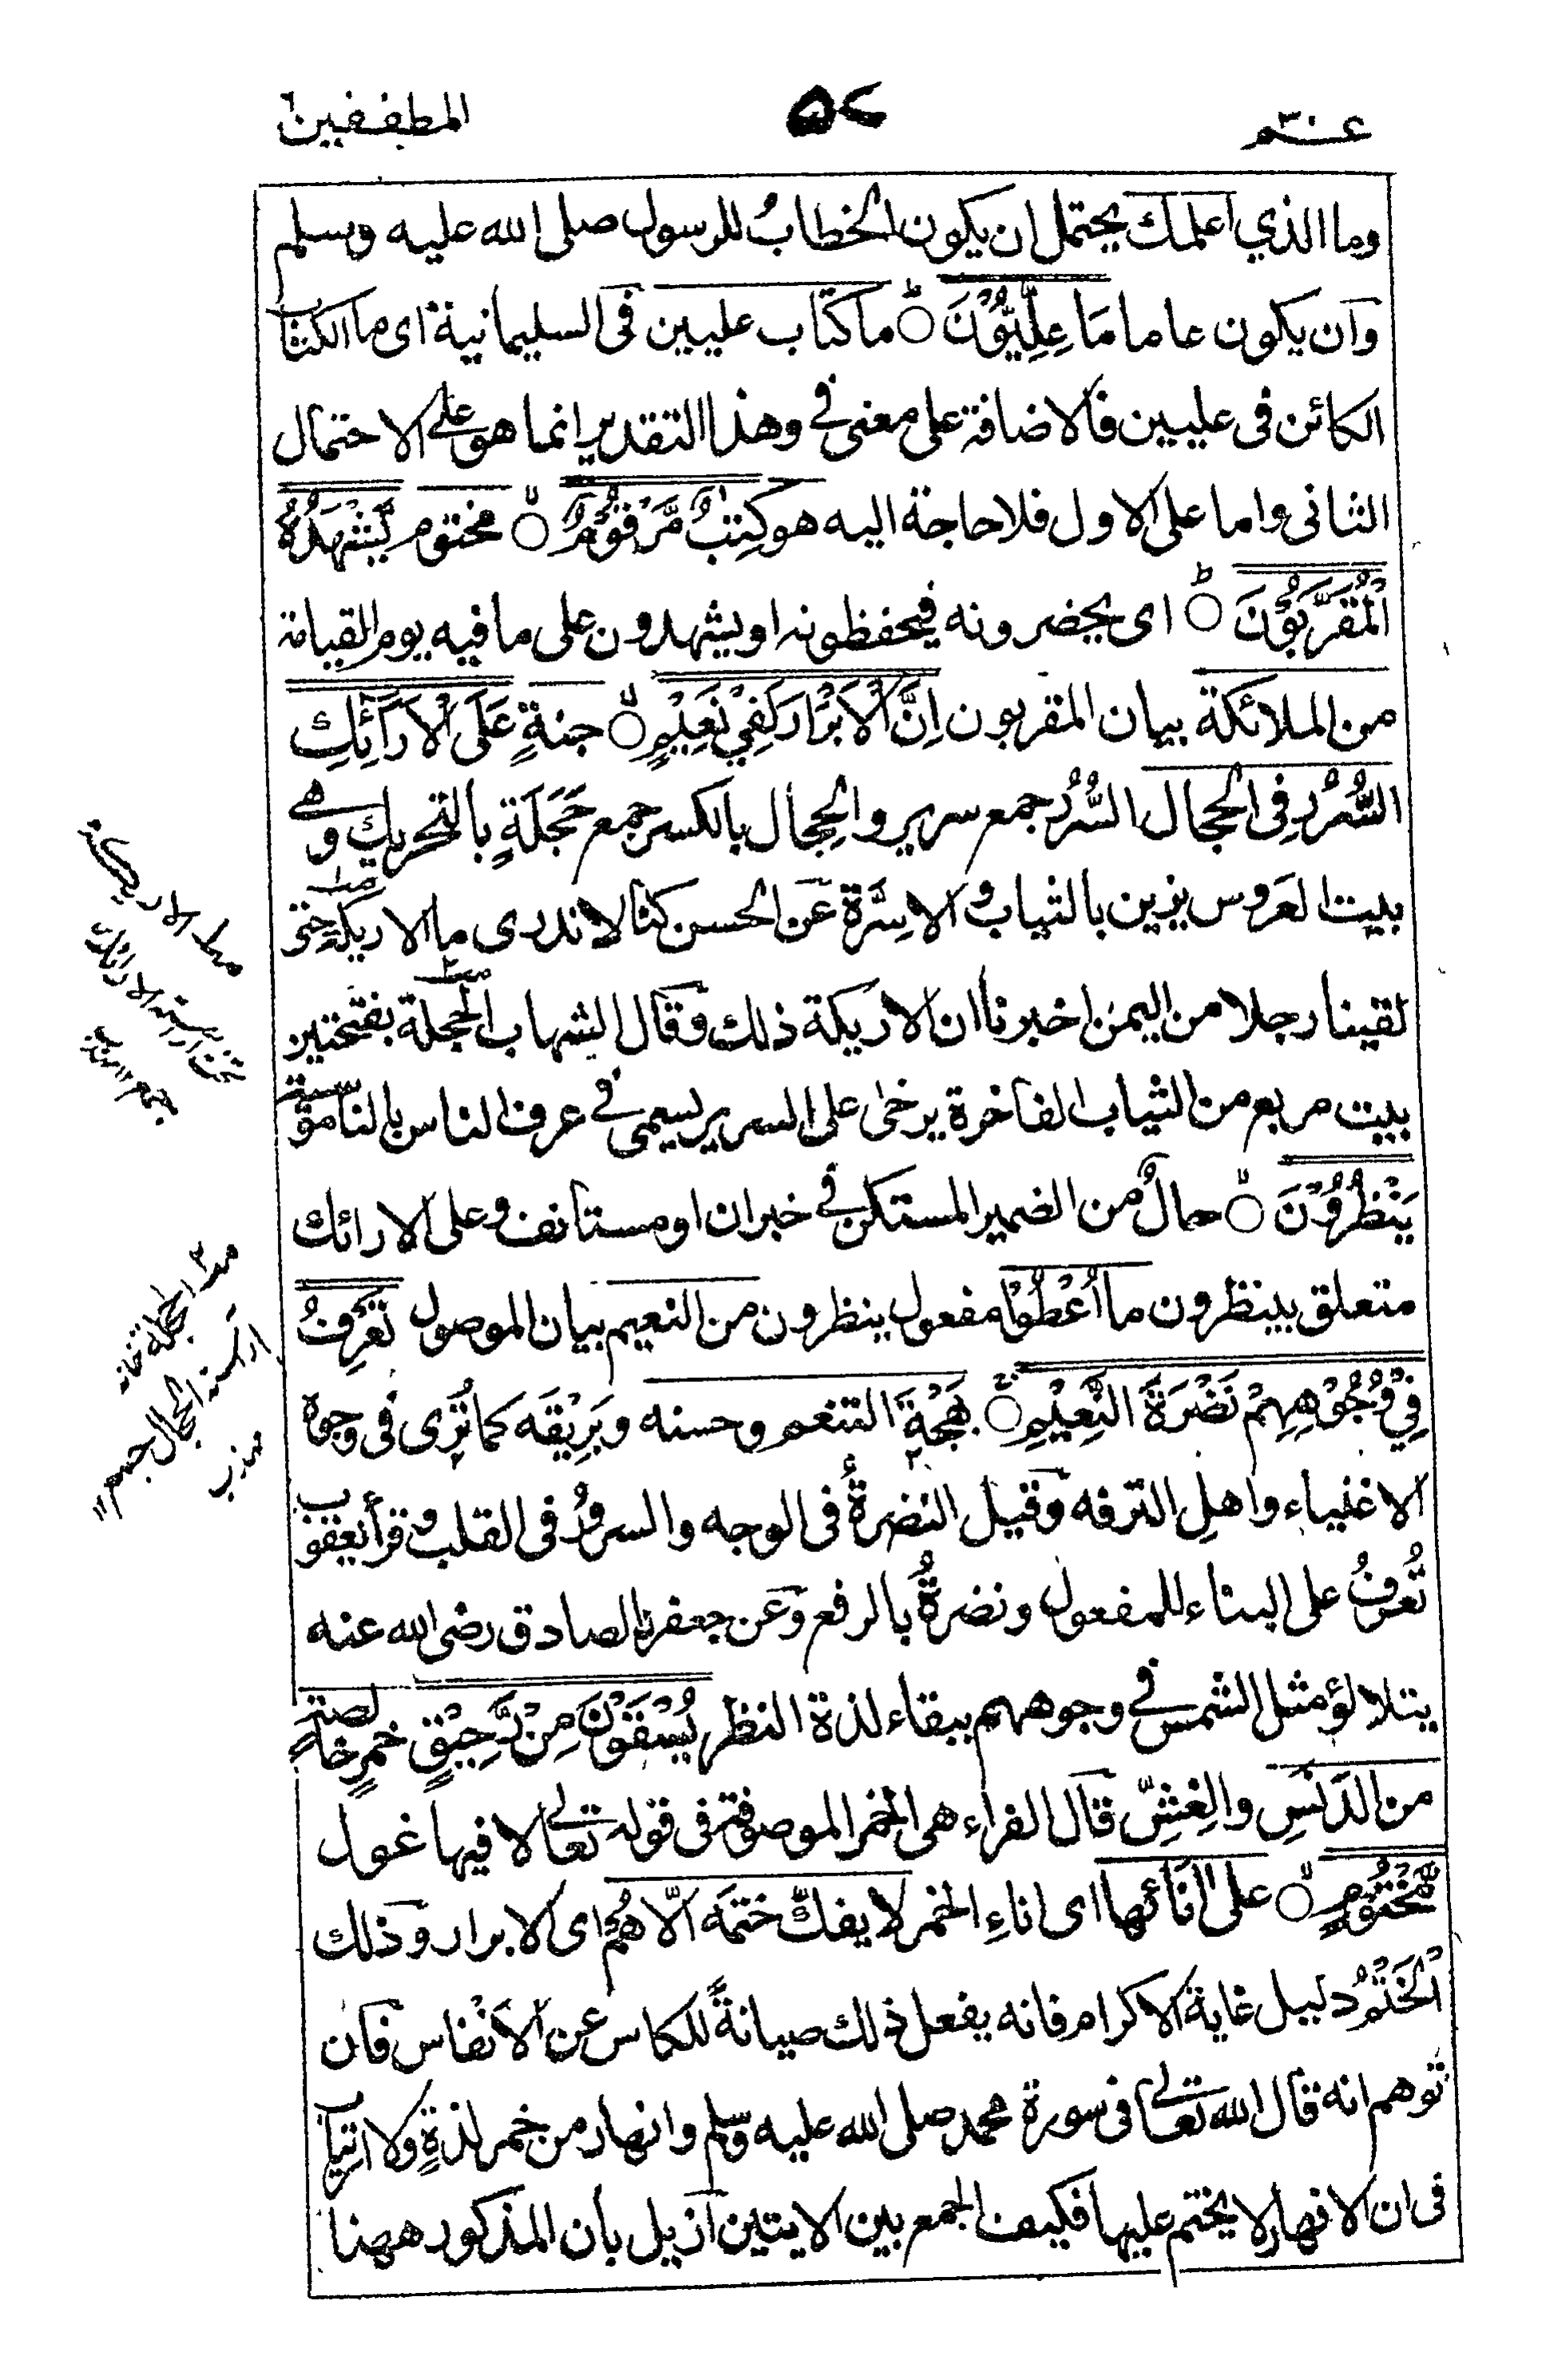 عــم
٥٢
المطففين
وما الذي اعلمك يحتمل ان يكون الخطابُ للرسول صلى الله عليه وسلم
وان يكون عاما مَا عِلِّيُّوْنَ ○ ما كتاب عليين فى السليمانية اى ما الكتاب
الكائن فى عليين فالاضافة على معنى في وهذا التقدير انما هو على الاحتمال
الثانى واما على الاول فلا حاجة اليه هو كِتٰبٌ مَّرْقُوْمٌ ○ مختوم يَّشْهَدُهُ
الْمُقَرَّبُوْنَ ○ اى يحضرونه فيحفظونه او يشهدون على ما فيه يوم القيامة
من الملائكة بيان المقربون اِنَّ الْاَبْرَارَ لَفِيْ نَعِيْمٍ ○ جنةٍ عَلَى الْاَرَآئِكِ
السُّرُرِ فِى الحجال السُّرُر جمع سرير والحِجال بالكسر جمع حَجَلَةٍ بالتحريك وهى
بيت العَروس يزين بالثياب والاسِرَّة عَن الحسن كنا لا ندرى ما الاريكة حتى
لقينا رجلا من اليمن اخبرنا ان الاريكة ذلك وقال الشهاب الحجلة بفتحتين
بيت مربع من الثياب الفاخرة يرخى على السرير يسمى في عرف الناس بالناموسية
يَنْظُرُوْنَ ○ حالٌ من الضمير المستكن في خبر ان او مستانف وعلى الارائك
متعلق بينظرون ما اُعْطُوْا مفعول ينظرون من النعيم بيان الموصول تَعْرِفُ
فِيْ وُجُوْهِهِمْ نَضْرَةَ النَّعِيْمِ ○ بَهْجَةَ التنعم وحسنه وبَرِيْقَه كما تُرى فى وجوه
الاغنياء واهلِ الترفه وقيل النضرةُ فى الوجه والسرورُ فى القلب وقرأ يعقوب
تُعرَفُ على البناء للمفعول ونضرةُ بالرفع وعن جعفر الصادق رضى الله عنه
يتلالؤ مثل الشمس في وجوههم ببقاء لذة النظر يُسْقَوْنَ مِنْ رَّحِيْقٍ خمرٍ خالصة
من الدَنَسِ والغِشِّ قال الفراء هى الخمر الموصوفة فى قوله تعالى لا فيها غول
مَّخْتُوْمٍ ○ على اِنَائها اى اناءِ الخمر لا يفكّ ختمَه الّا هُم اى الابرار وذلك
الْخَتْمُ دليل غاية الاكرام فانه يفعل ذلك صيانةً للكاس عن الاَنْفاس فان
توهم انه قال الله تعالى فى سورة محمد صلى الله عليه وسلم وانهار من خمر لذةٍ ولا ارتياب
فى ان الانهار لا يختم عليها فكيف الجمع بين الايتين ازيل بان المذكور ههنا
الاريكة
الحجلة